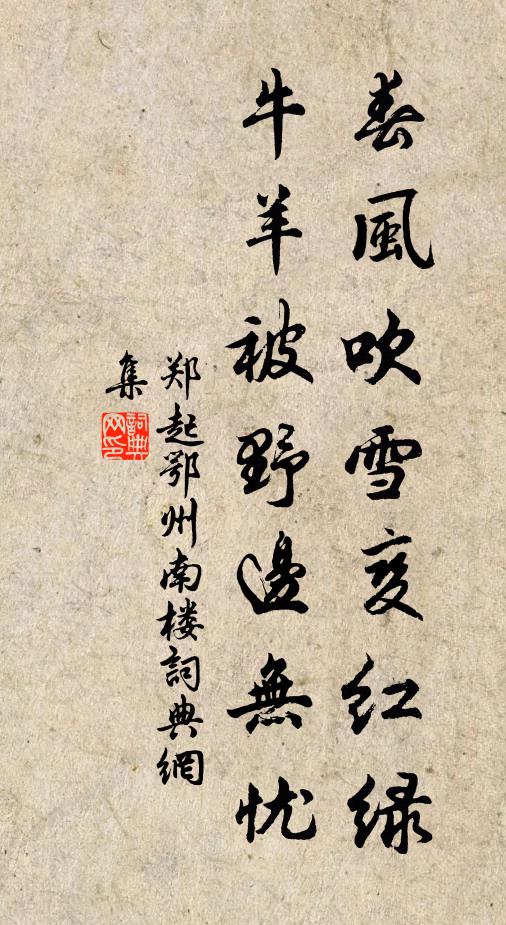 春風吹雪变红绿
牛羊被野邊無忧
郑起鄂州南楼詞典網
集
詞典网印